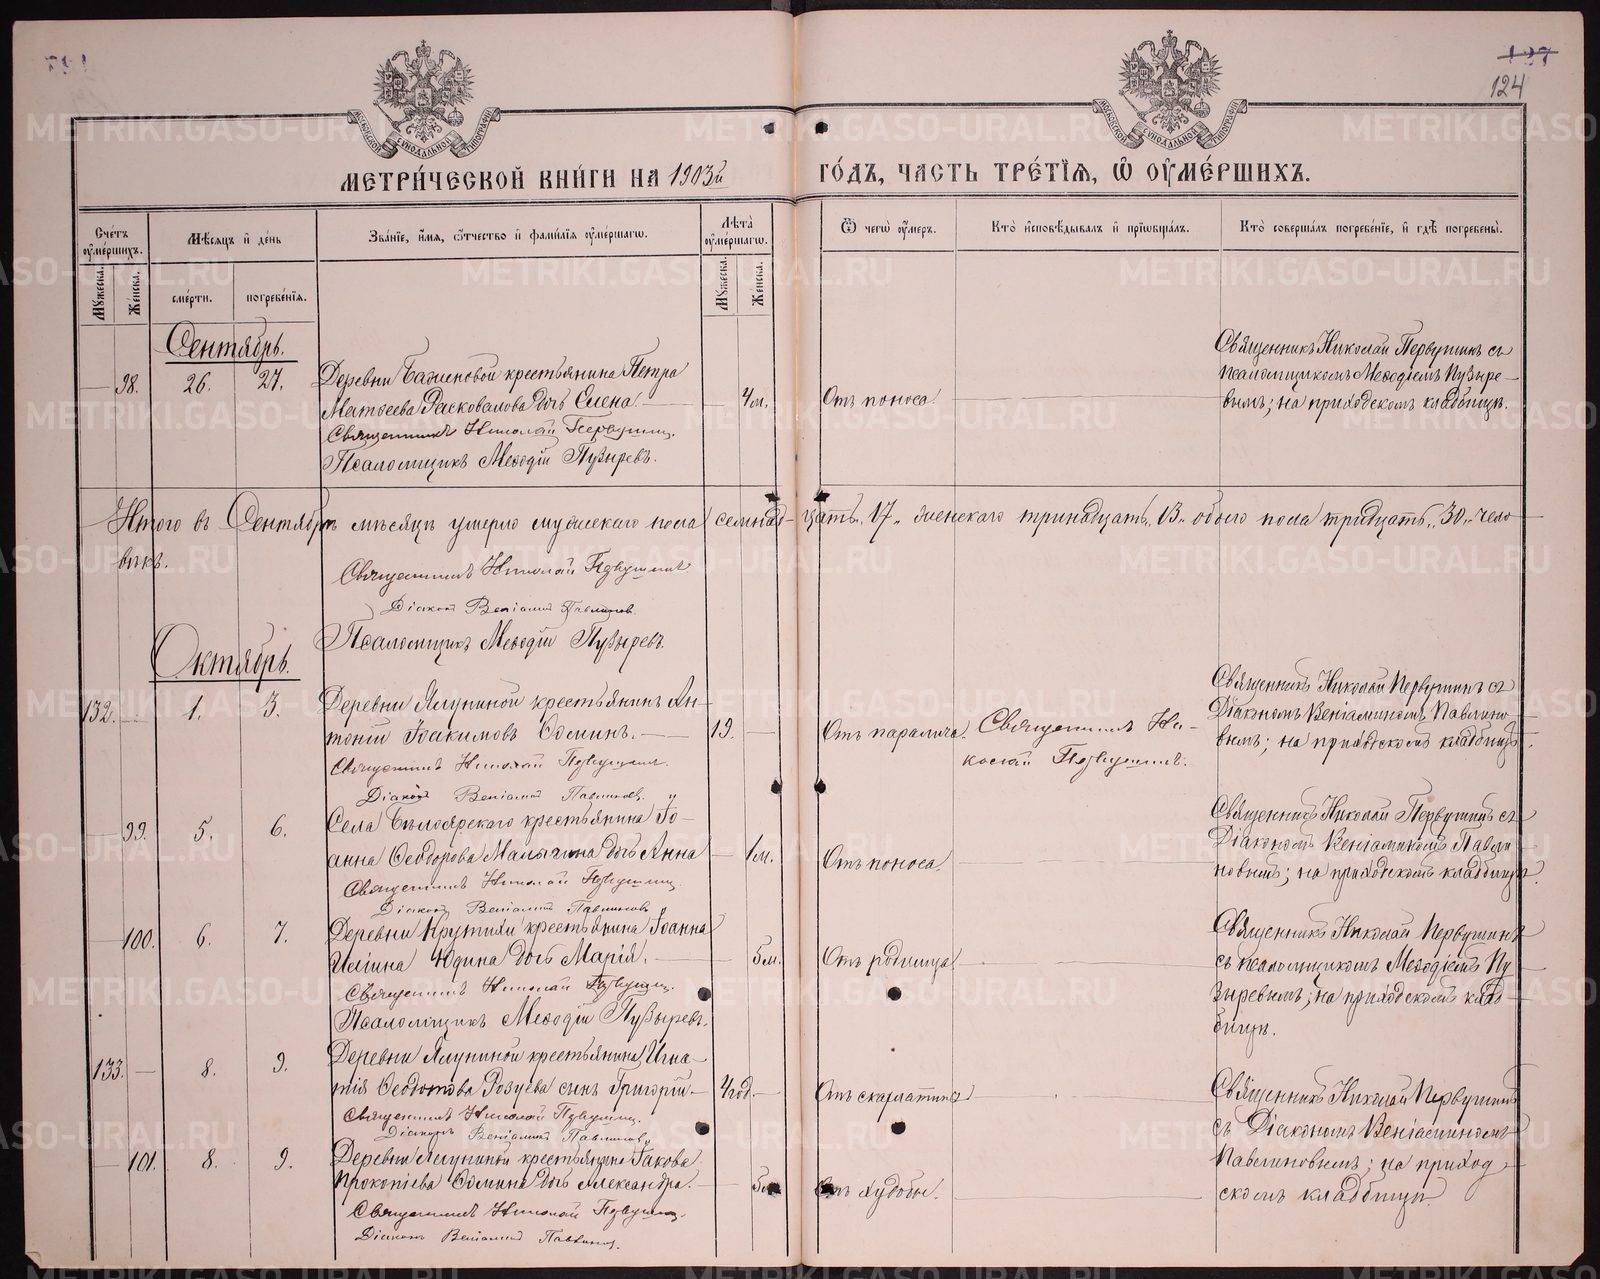 127
124
МОСКОВСКОЙ СИНОДАЛЬНОЙ ТИПОГРАФІИ
МОСКОВСКОЙ СИНОДАЛЬНОЙ ТИПОГРАФІИ
МЕТРИ́ЧЕСКОЙ КНИ́ГИ НА 1903й ГО́ДЪ, ЧАСТЬ ТРЕ́ТІѦ, Ѡ҆ ОУ҆МЕ́РШИХЪ.
Сче́тъ оу҆ме́ршихъ.
Мꙋ́жеска.
Же́нска.
Мѣ́сяцъ и҆ де́нь
сме́рти.
погребе́нія.
Зва́ніе, и҆́мя, ѻ҆́тчество и҆ фами́лія оу҆ме́ршагѡ.
Лѣ̑та оу҆ме́ршагѡ.
Мꙋ́жеска.
Же́нска.
Ѿ чегѡ̀ оу҆́меръ.
Кто̀ и҆сповѣ́дывалъ и҆ прїѡбща́лъ.
Кто̀ соверша́лъ погребе́ніе, и҆ гдѣ̀ погребены̀.
Сентябрь.
— 98. 26. 27. Деревни Баженовой крестьянина Петра
Матѳеева Расковалова дочь Елена. — 4 м. Отъ поноса.
Священникъ Николай Первушинъ.
Псаломщикъ Меѳодій Пузыревъ.
Священникъ Николай Первушинъ съ
псаломщикомъ Меѳодіемъ Пузыре-
вымъ; на приходскомъ кладбищѣ.
Итого въ Сентябрѣ мѣсяцѣ умерло мужескаго пола семнадцать „17„ женскаго тринадцать „13„ обоего пола тридцать „30„ чело
вѣкъ.
Священникъ Николай Первушинъ
Діаконъ Веніаминъ Павлиновъ
Псаломщикъ Меѳодій Пузыревъ.
Октябрь.
132. — 1. 3. Деревни Ялуниной крестьянинъ Ан-
тоній Іоакимовъ Ѳоминъ. — 19. — Отъ паралича. Священникъ Ни-
колай Первушинъ.
Священникъ Николай Первушинъ.
Діаконъ Веніаминъ Павлиновъ.
Священникъ Николай Первушинъ съ
Діакономъ Веніаминомъ Павлино-
вымъ; на приходскомъ кладбищѣ.
— 99. 5. 6. Села Бѣлоярскаго крестьянина Іо-
анна Ѳеодорова Малыгина дочь Анна — 1 м. Отъ поноса.
Священникъ Николай Первушинъ
Діаконъ Веніаминъ Павлиновъ
Священникъ Николай Первушинъ съ
Діакономъ Веніаминомъ Павли
новымъ; на приходскомъ кладбищѣ.
— 100. 6. 7. Деревни Крутихи крестьянина Іоанна
Ильина Юдина дочь Марія. — 5 м. Отъ родимца.
Священникъ Николай Первушинъ.
Псаломщикъ Меѳодій Пузыревъ.
Священникъ Николай Первушинъ
съ псаломщикомъ Меѳодіемъ Пу
зыревымъ; на приходскомъ клад
бищѣ.
133. — 8. 9. Деревни Ялуниной крестьянина Игна-
тія Ѳеодотова сынъ Григорій. — 4 год. — Отъ скарлатины
Священникъ Николай Первушинъ.
Діаконъ Веніаминъ Павлиновъ
Священникъ Николай Первушинъ
съ Діакономъ Веніаминомъ
Павлиновымъ; на приход
скомъ кладбищѣ.
— 101. 8. 9. Деревни Ялуниной крестьянина Іакова
Прокопіева Ѳомина дочь Александра. — 5 м. Отъ худобы.
Священникъ Николай Первушинъ.
Діаконъ Веніаминъ Павлиновъ.
METRIKI.GASO-URAL.RU